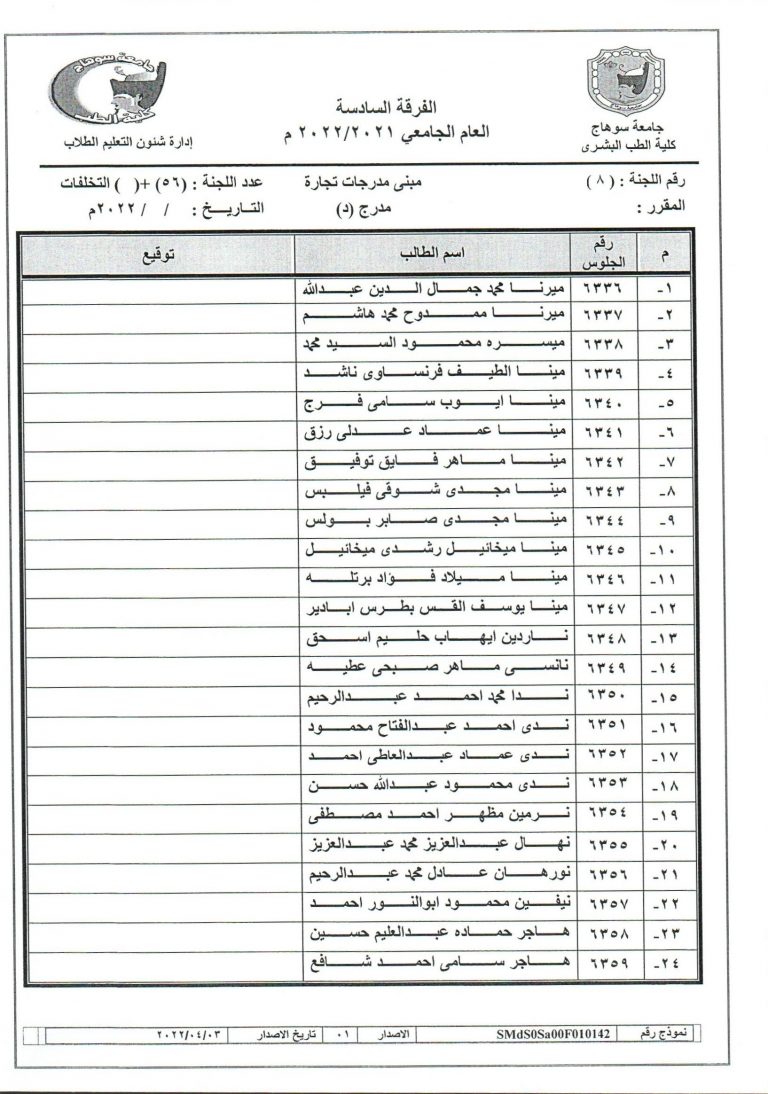 جامعة سوهاج
كلية الطب
جامعة سوهاج
كلية الطب البشرى
الفرقة السادسة
العام الجامعي ٢٠٢٢/٢٠٢١ م
إدارة شئون التعليم الطلاب
رقم اللجنة : ( ٨ ) مبنى مدرجات تجارة عدد اللجنة : (٥٦) +( ) التخلفات
المقرر : مدرج (د) التاريخ : / / ٢٠٢٢م
م رقم الجلوس اسم الطالب توقيع
١- ٦٣٣٦ ميرنا محمد جمال الدين عبدالله
٢- ٦٣٣٧ ميرنا ممدوح محمد هاشم
٣- ٦٣٣٨ ميسره محمود السيد محمد
٤- ٦٣٣٩ مينا الطيف فرنساوى ناشد
٥- ٦٣٤٠ مينا ايوب سامى فرج
٦- ٦٣٤١ مينا عماد عدلى رزق
٧- ٦٣٤٢ مينا ماهر فايق توفيق
٨- ٦٣٤٣ مينا مجدى شوقى فيلبس
٩- ٦٣٤٤ مينا مجدى صابر بولس
١٠- ٦٣٤٥ مينا ميخائيل رشدى ميخائيل
١١- ٦٣٤٦ مينا ميلاد فؤاد برتله
١٢- ٦٣٤٧ مينا يوسف القس بطرس ابادير
١٣- ٦٣٤٨ ناردين ايهاب حليم اسحق
١٤- ٦٣٤٩ نانسى ماهر صبحى عطيه
١٥- ٦٣٥٠ ندا محمد احمد عبدالرحيم
١٦- ٦٣٥١ ندى احمد عبدالفتاح محمود
١٧- ٦٣٥٢ ندى عماد عبدالعاطى احمد
١٨- ٦٣٥٣ ندى محمود عبدالله حسن
١٩- ٦٣٥٤ نرمين مظهر احمد مصطفى
٢٠- ٦٣٥٥ نهال عبدالعزيز محمد عبدالعزيز
٢١- ٦٣٥٦ نورهان عادل محمد عبدالرحيم
٢٢- ٦٣٥٧ نيفين محمود ابوالنور احمد
٢٣- ٦٣٥٨ هاجر حماده عبدالعليم حسين
٢٤- ٦٣٥٩ هاجر سامى احمد شافع
نموذج رقم SMdS0Sa00F010142 الاصدار ٠١ تاريخ الاصدار ٢٠٢٢/٠٤/٠٣